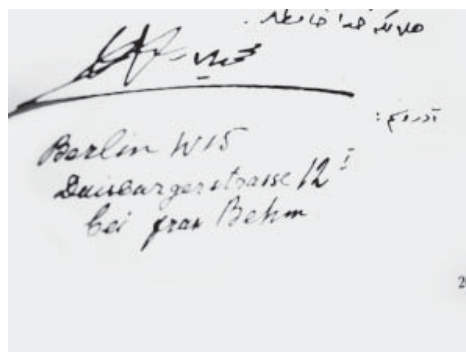 خدا حافظ
آدرس :
Berlin W15
Duisburgerstrasse 12 I
bei frau Behm
2